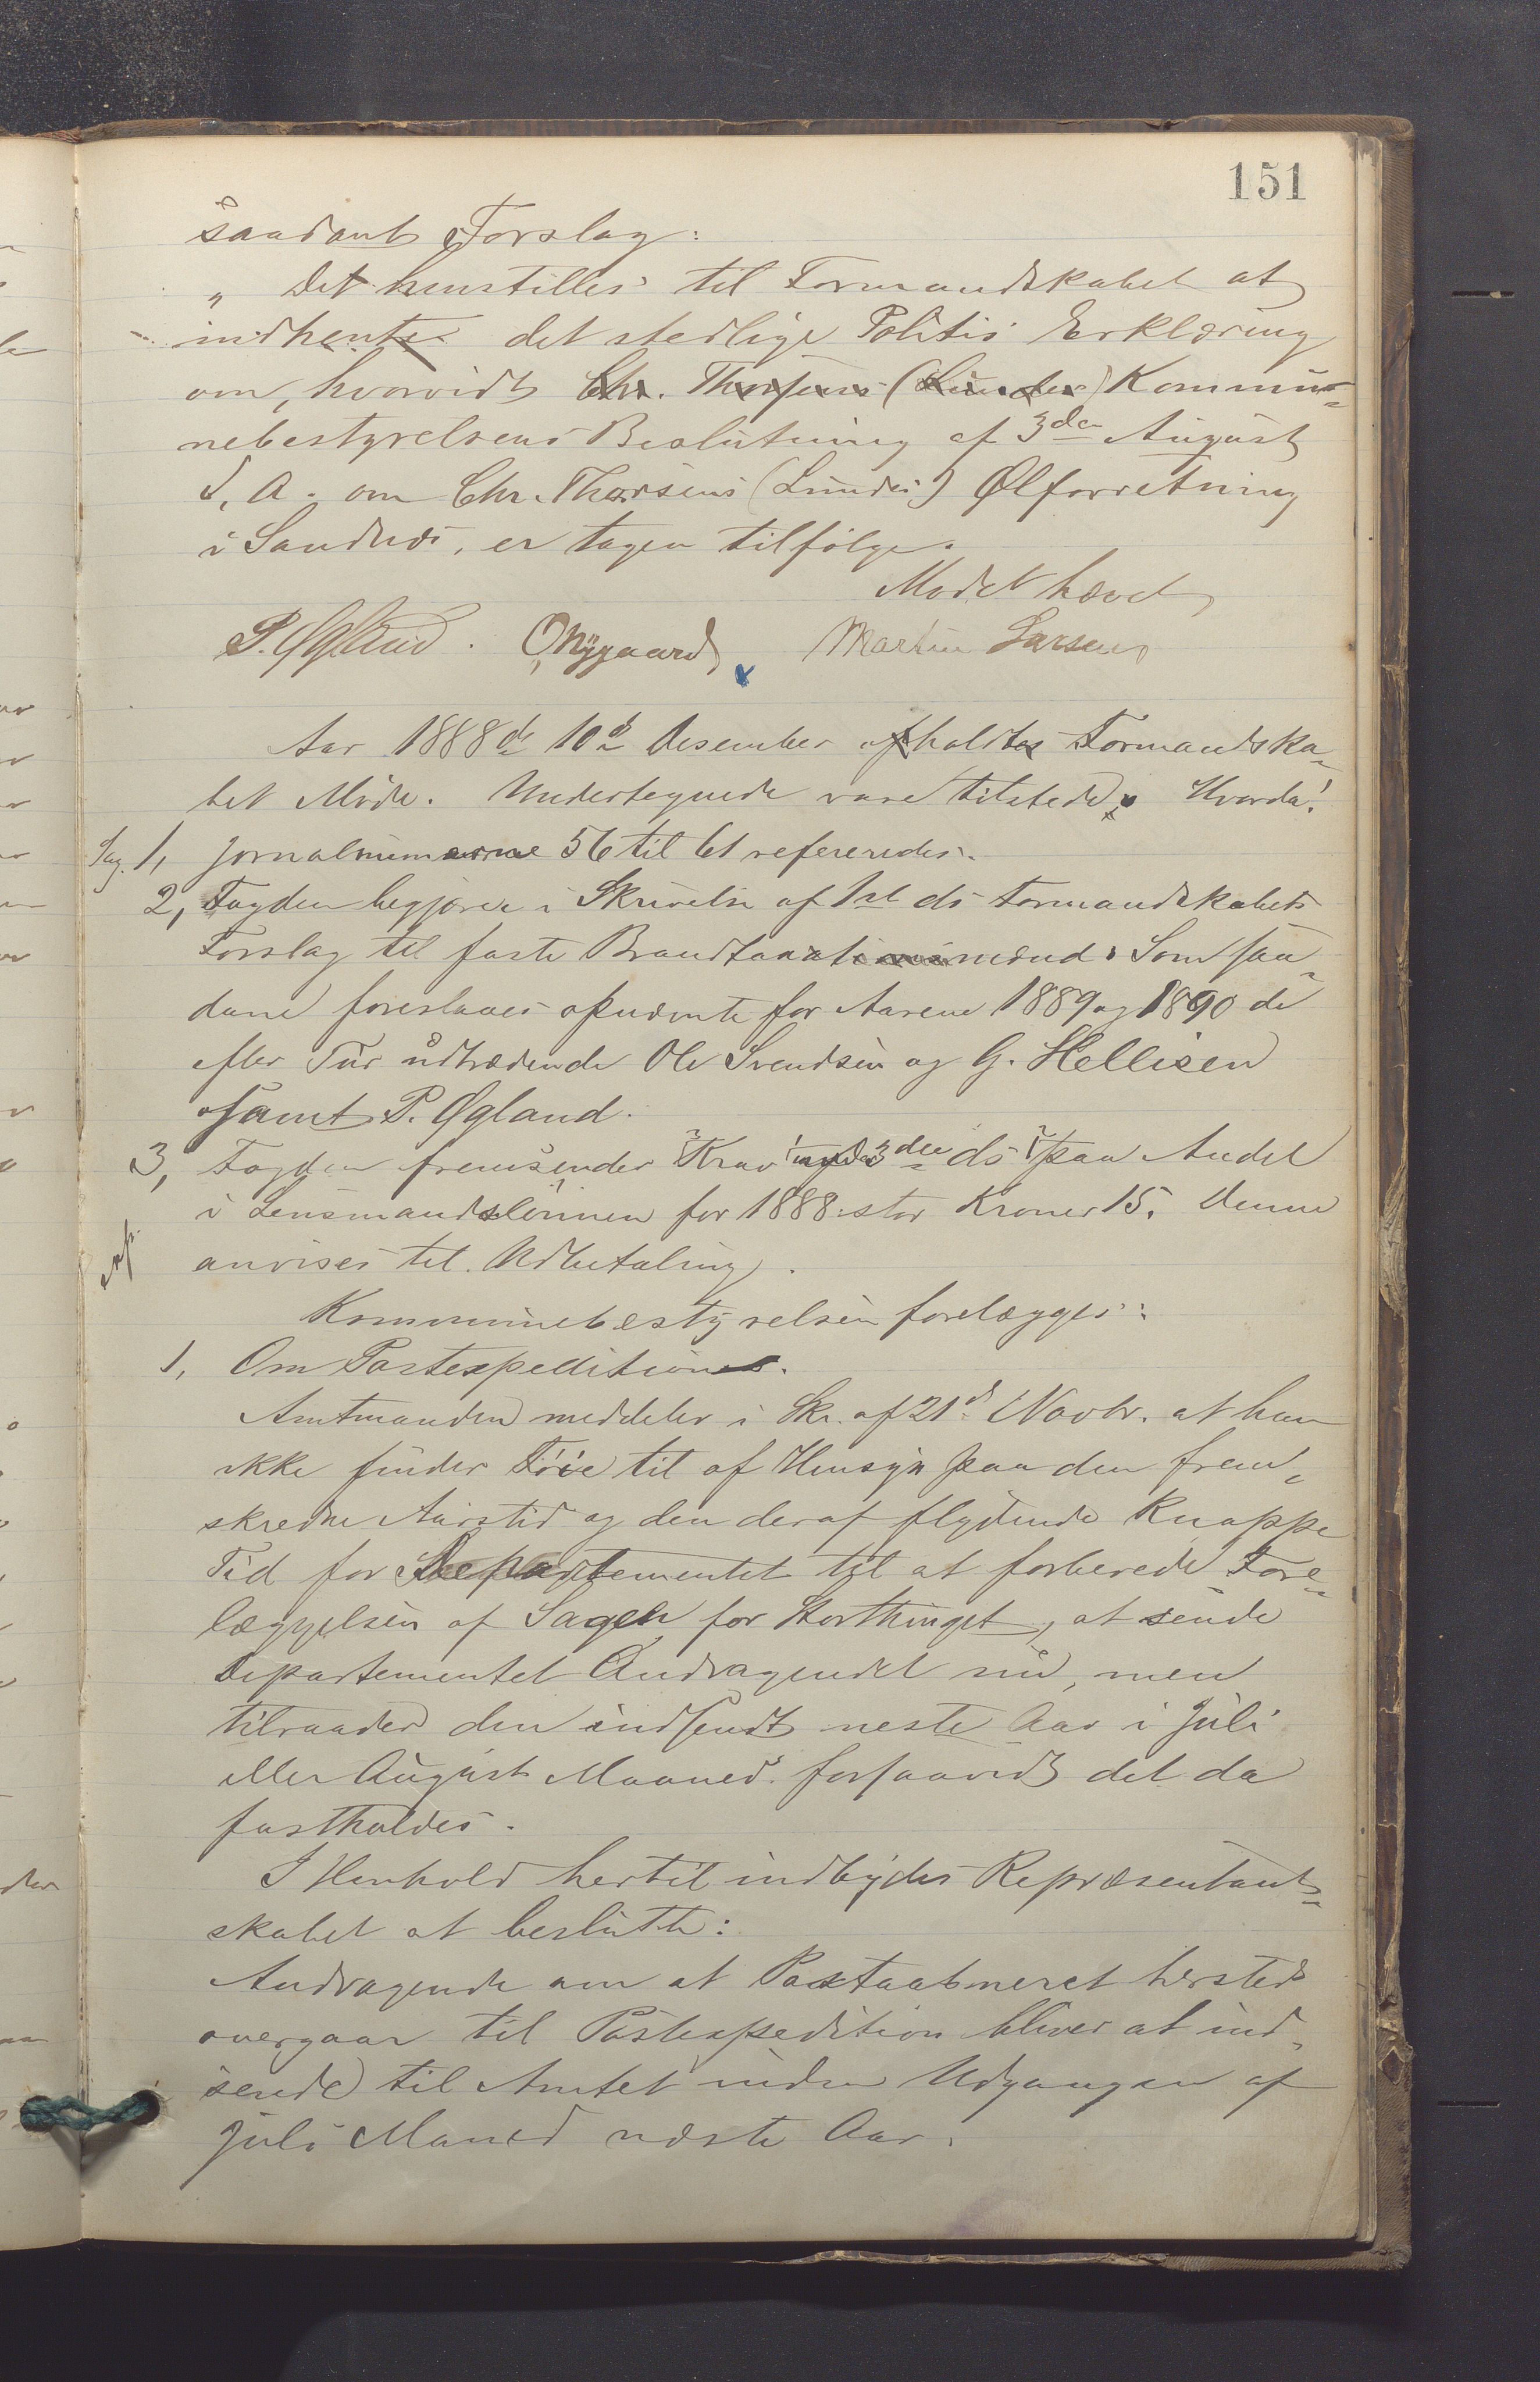 151
saadant Forslag:
„ Det henstilles til Formandskabet at
indhente det stedlige Politis Erklæring
om, hvorvidt Chr. Thorsens (Lundes) Kommu-
nebestyrelsens Beslutning af 3den August
d. A. om Chr. Thorsens (Lundes) Ølforretning
i Sandnes, er tagen tilfølge.
Mødet hævet
P. Øgland. O Nygaard, Martin Larsen
Aar 1888 d 10d Desember afholdtes Formandska-
bet Møde. Undertegnede vare tilstede. Hvorda:
Sag. 1, Jornalnumerne 56 til 61 refereredes.
2, Fogden begjærer i Skrivelse af 1st ds Formandskabets
Forslag til faste Brandtaxationsmænd. Som saa-
dane foreslaaes opnævnte for Aarene 1889 og 1890 de
efter Tur udtrædende Ole Svendsen og G. Hellisen
samt P. Øgland.
3, Fogden fremsender Krav 3die ds paa Andel
i Lensmandslønnen for 1888 stor Kroner 15. Denne
anvises til Udbetaling.
Kommunebestyrelsen forelægges:
1, Om Postexpedition.
Amtmanden meddeler i Skr. af 21d Novbr. at han
ikke finder Føie til af Hensyn paa den frem-
skredne Aarstid og den deraf flydende Knappe
Tid for Departementet til at forberede Fore-
læggelsen af Sagen for Storthinget, at sende
Departementet Andragendet nu, men
tilraader den indsendt neste Aar i Juli
eller August Maaned forsaavidt det da
fastholdes.
I Henhold hertil indbydes Repræsentant-
skabet at beslutte:
Andragende om at Postaabneret hersteds
overgaar til Postexpedition bliver at ind-
sende til Amtet inden Udgangen af
Juli Maned næste Aar.